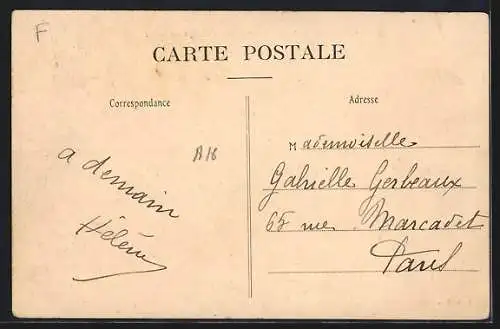 F
CARTE POSTALE
Correspondance
Adresse
A16
a demain
Hélène
Mademoiselle
Gabrielle Gerbeaux
65 rue Marcadet
Paris